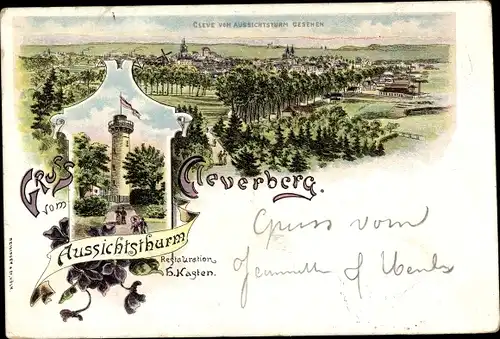 CLEVE VOM AUSSICHTSTURM GESEHEN
Gruss
vom
Cleverberg.
Aussichtsthurm
Restauration
H. Kasten.
Gruss vom